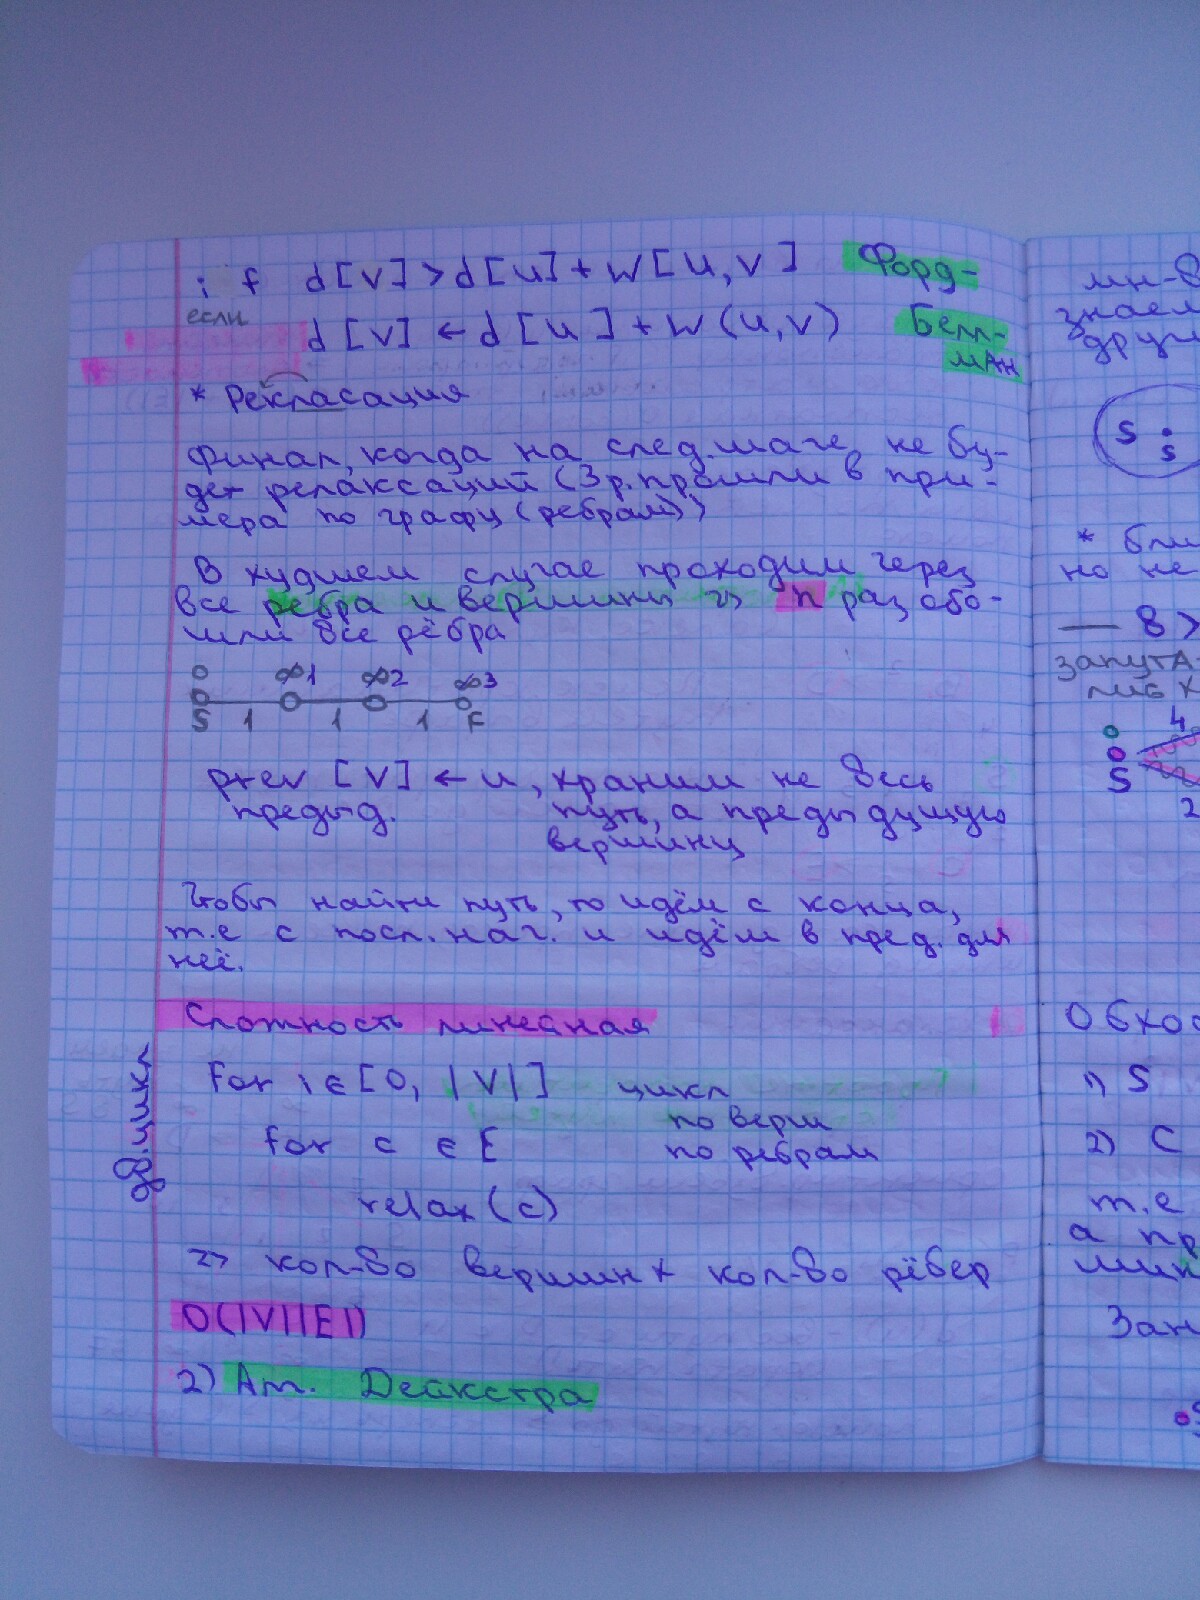 if d[v]>d[u]+w[u,v] Форд-
если
d[v] ← d[u]+w(u,v) Белл-
ман
* Рекласация
Финал, когда на след.шаге не бу-
дет релаксаций (3 р.прошли в при-
мера по графу (ребрам))
В худшем случае проходим через
все ребра и вершины => n раз обо-
шли все рёбра
0 ∞1 ∞2 ∞3
S 1 1 1 F
prev [v] ← u, храним не весь
предыд. путь, а предыдущую
вершину
Чтобы найти путь, то идём с конца,
т.е с посл.нач. и идём в пред. для
неё.
Сложность линейная
дв.цикл
for i ∈ [0, |V|] цикл
по верш
for c ∈ E по ребрам
relax(c)
=> кол-во вершин * кол-во рёбер
O(|V||E|)
2) Ал. Дейкстра
мн-в
знаем
други
S
s
* бли
но не
— 8 >
запута-
4
0
S
2
Обхо
1) S
2) C
т.е
а пр
мин
Зан